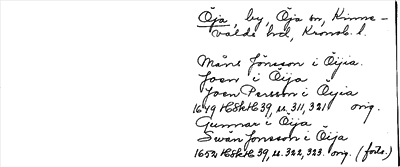 Öja, by, Öja sn, Kinne-
valds hd, Kronob. l.
Måns Jönsson i Öijia.
Joen i Öija
Joen Persson i Öyia
1649 HSkH 39, u. 311, 321 orig.
Gunnar i Öija
Swän Jonsson i Öija
1652 HSkH 39, u. 322, 323. orig. (forts.)